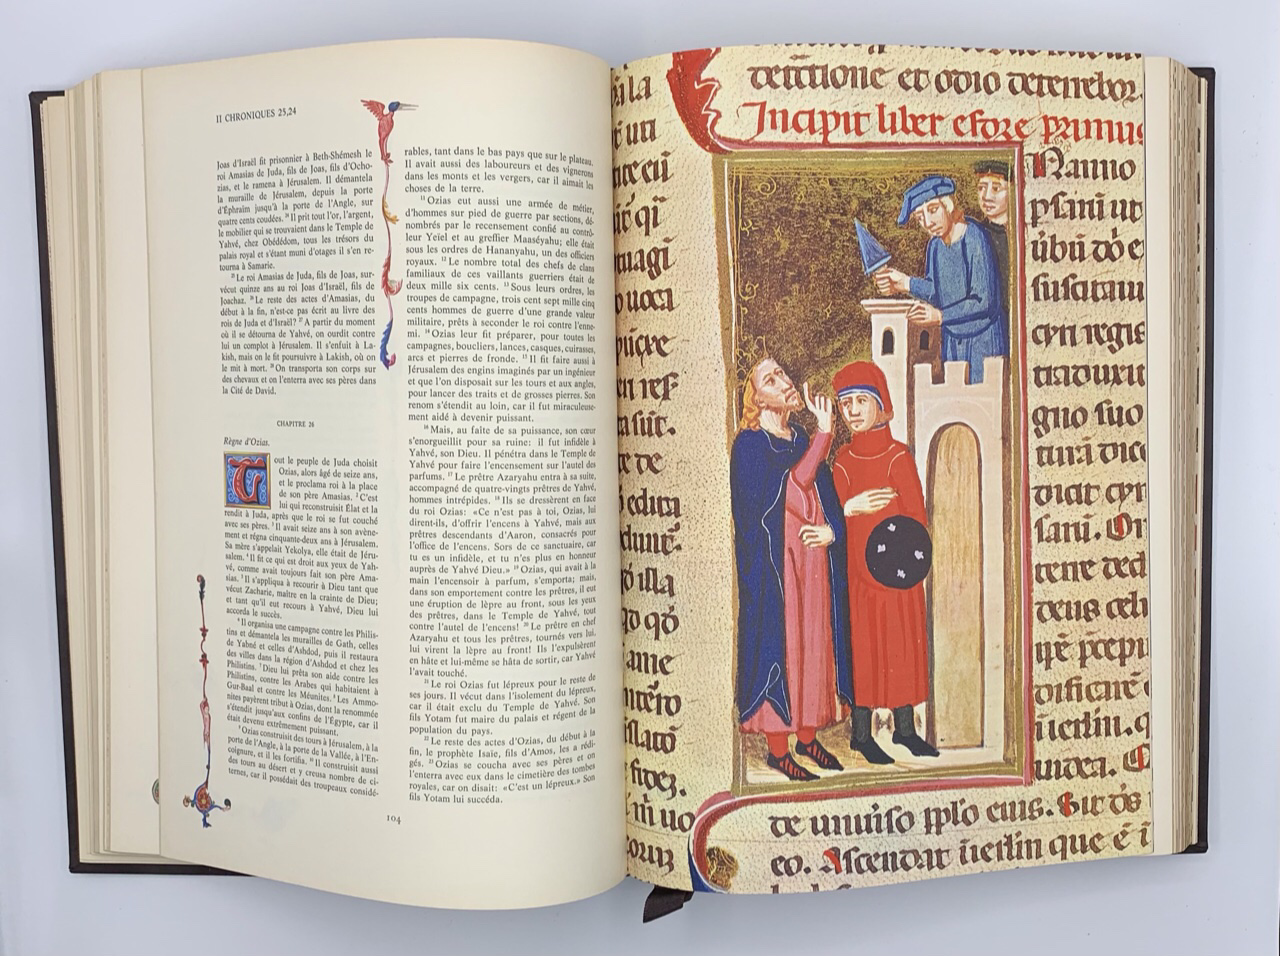 II CHRONIQUES 25,24
Joas d'Israël fit prisonnier à Beth-Shémesh le
roi Amasias de Juda, fils de Joas, fils d'Ocho-
zias, et le ramena à Jérusalem. Il démantela
la muraille de Jérusalem, depuis la porte
d'Éphraïm jusqu'à la porte de l'Angle, sur
quatre cents coudées. ²⁴Il prit tout l'or, l'argent,
le mobilier qui se trouvaient dans le Temple de
Yahvé, chez Obédédom, tous les trésors du
palais royal et s'étant muni d'otages il s'en re-
tourna à Samarie.
²⁵Le roi Amasias de Juda, fils de Joas, sur-
vécut quinze ans au roi Joas d'Israël, fils de
Joachaz. ²⁶Le reste des actes d'Amasias, du
début à la fin, n'est-ce pas écrit au livre des
rois de Juda et d'Israël? ²⁷A partir du moment
où il se détourna de Yahvé, on ourdit contre
lui un complot à Jérusalem. Il s'enfuit à La-
kish, mais on le fit poursuivre à Lakish, où on
le mit à mort. ²⁸On transporta son corps sur
des chevaux et on l'enterra avec ses pères dans
la Cité de David.
CHAPITRE 26
Règne d'Ozias.
Tout le peuple de Juda choisit
Ozias, alors âgé de seize ans,
et le proclama roi à la place
de son père Amasias. ²C'est
lui qui reconstruisit Élat et la
rendit à Juda, après que le roi se fut couché
avec ses pères. ³Il avait seize ans à son avène-
ment et régna cinquante-deux ans à Jérusalem.
Sa mère s'appelait Yekolya, elle était de Jéru-
salem. ⁴Il fit ce qui est droit aux yeux de Yah-
vé, comme avait toujours fait son père Ama-
sias. ⁵Il s'appliqua à recourir à Dieu tant que
vécut Zacharie, maître en la crainte de Dieu;
et tant qu'il eut recours à Yahvé, Dieu lui
accorda le succès.
⁶Il organisa une campagne contre les Philis-
tins et démantela les murailles de Gath, celles
de Yabné et celles d'Ashdod, puis il restaura
des villes dans la région d'Ashdod et chez les
Philistins. ⁷Dieu lui prêta son aide contre les
Philistins, contre les Arabes qui habitaient à
Gur-Baal et contre les Méunites. ⁸Les Ammo-
nites payèrent tribut à Ozias, dont la renommée
s'étendit jusqu'aux confins de l'Égypte, car il
était devenu extrêmement puissant.
⁹Ozias construisit des tours à Jérusalem, à la
porte de l'Angle, à la porte de la Vallée, à l'En-
coignure, et il les fortifia. ¹⁰Il construisit aussi
des tours au désert et y creusa nombre de ci-
ternes, car il possédait des troupeaux considé-
rables, tant dans le bas pays que sur le plateau.
Il avait aussi des laboureurs et des vignerons
dans les monts et les vergers, car il aimait les
choses de la terre.
¹¹Ozias eut aussi une armée de métier,
d'hommes sur pied de guerre par sections, dé-
nombrés par le recensement confié au contrô-
leur Yeïel et au greffier Maaséyahu; elle était
sous les ordres de Hananyahu, un des officiers
royaux. ¹²Le nombre total des chefs de clans
familiaux de ces vaillants guerriers était de
deux mille six cents. ¹³Sous leurs ordres, les
troupes de campagne, trois cent sept mille cinq
cents hommes de guerre d'une grande valeur
militaire, prêts à seconder le roi contre l'enne-
mi. ¹⁴Ozias leur fit préparer, pour toutes les
campagnes, boucliers, lances, casques, cuirasses,
arcs et pierres de fronde. ¹⁵Il fit faire aussi à
Jérusalem des engins imaginés par un ingénieur
et que l'on disposait sur les tours et aux angles,
pour lancer des traits et de grosses pierres. Son
renom s'étendit au loin, car il fut miraculeuse-
ment aidé à devenir puissant.
¹⁶Mais, au faîte de sa puissance, son cœur
s'enorgueillit pour sa ruine: il fut infidèle à
Yahvé, son Dieu. Il pénétra dans le Temple de
Yahvé pour faire l'encensement sur l'autel des
parfums. ¹⁷Le prêtre Azaryahu entra à sa suite,
accompagné de quatre-vingts prêtres de Yahvé,
hommes intrépides. ¹⁸Ils se dressèrent en face
du roi Ozias: «Ce n'est pas à toi, Ozias, lui
dirent-ils, d'offrir l'encens à Yahvé, mais aux
prêtres descendants d'Aaron, consacrés pour
l'office de l'encens. Sors de ce sanctuaire, car
tu es un infidèle, et tu n'es plus en honneur
auprès de Yahvé Dieu.» ¹⁹Ozias, qui avait à la
main l'encensoir à parfum, s'emporta; mais,
dans son emportement contre les prêtres, il eut
une éruption de lèpre au front, sous les yeux
des prêtres, dans le Temple de Yahvé, tout
contre l'autel de l'encens! ²⁰Le prêtre en chef
Azaryahu et tous les prêtres, tournés vers lui,
lui virent la lèpre au front! Ils l'expulsèrent
en hâte et lui-même se hâta de sortir, car Yahvé
l'avait touché.
²¹Le roi Ozias fut lépreux pour le reste de
ses jours. Il vécut dans l'isolement du lépreux,
car il était exclu du Temple de Yahvé. Son
fils Yotam fut maire du palais et régent de la
population du pays.
²²Le reste des actes d'Ozias, du début à la
fin, le prophète Isaïe, fils d'Amos, les a rédi-
gés. ²³Ozias se coucha avec ses pères et on
l'enterra avec eux dans le cimetière des tombes
royales, car on disait: «C'est un lépreux.» Son
fils Yotam lui succéda.
104
et odio
Incipit liber esdre primus
anno
cyri regis
gno suo
turā
diat cyr
deus celi
ierlm.
de uniuso ip̄lo eius. Sit d̄s
eo. Ascendat ierlm que ē i